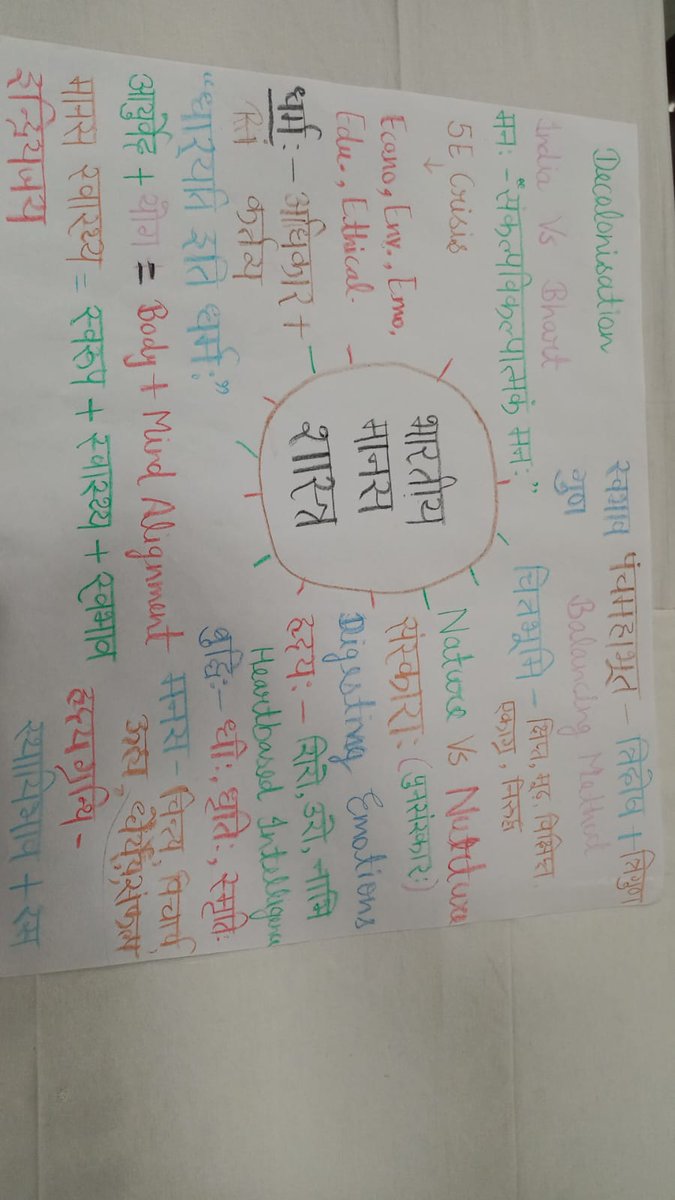 Decolonisation
India Vs Bhart
मनः - "संकल्पविकल्पात्मकं मनः"
5E Crisis
↓
Econo, Env., Emo,
Edu., Ethical.
धर्मः - अधिकार +
कर्तव्य
"धारयति इति धर्मः"
आयुर्वेद + योग = Body + Mind Alignment
मानस स्वास्थ्य = स्वरूप + स्वास्थ्य + स्वभाव
इन्द्रियजय
भारतीय
मानस
शास्त्र
स्वभाव पंचमहाभूत - त्रिदोष + त्रिगुण
गुण Balancing Method
चित्तभूमि - क्षिप्त, मूढ विक्षिप्त.
एकाग्र, निरुद्ध
Nature Vs Nurture
संस्कारः (पुनसंस्कारः)
Digesting Emotions
हृदयः - शिरो, उरो, नाभि
Heartbased Intelligence
बुद्धिः - धीः, धृतिः, स्मृतिः
मनस - चिन्त्य, विचार्य,
ऊह्य, ध्येय, संकल्प
हृदयग्रन्थि -
स्थायिभाव + रस